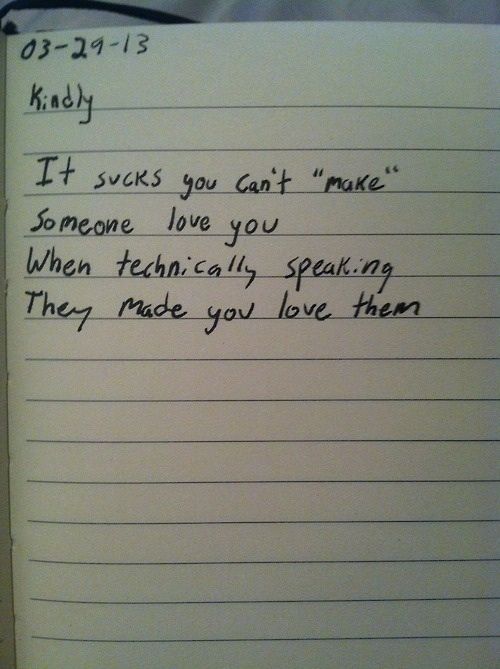 03-29-13
Kindly
It sucks you can't "make"
Someone love you
When technically speaking
They made you love them